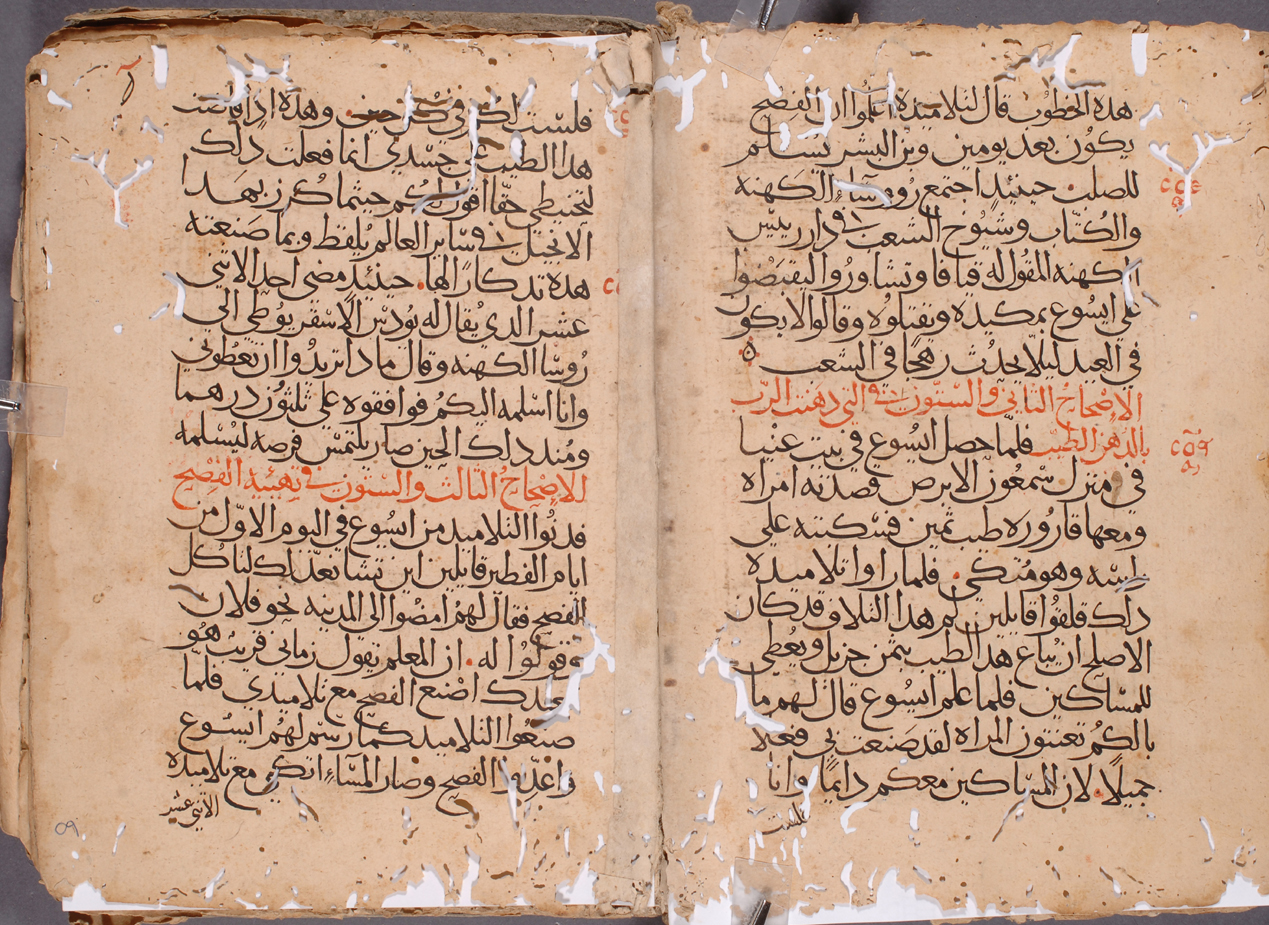 هذه الخطوب قال لتلاميذه اعلموا ان الفصح
يكون بعد يومين وبن البشر يسلم
للصلب حينئذ اجتمع رووساء الكهنه
والكتاب وشيوخ الشعب في دار رييس
الكهنه المقول له قيافا وتشاوروا ليقبضوا
علي ايسوع بمكيده ويقتلوه وقالوا لا يكون
في العيد ليلا يحدث رهجا في الشعب
الاصحاح الثاني والستون في التي دهنت الرب
بالدهن الطيب فلما حصل ايسوع في بيت عنيا
في منزل سمعون الابرص قصدته امراه
ومعها قاروره طيب ثمين فسكبته علي
راسه وهو متكي فلما راوا تلاميده
داك قلقوا قايلين لم هدا التلاف قد كان
الاصلح ان يباع هدا الطيب بثمن جزيل ويعطي
للمساكين فلما علم ايسوع قال لهم ما
بالكم تعنتون المراه لقد صنعت بي فعلا
جميلا لان المساكين معكم دايما وانا
فلست
فلست لكم في كل حين وهذه اذ افاضت
هدا الطيب علي جسدي انما فعلت دلك
لتحنيطي حقا اقول لكم حيثما كرز بهدا
الانجيل في ساير العالم يلفظ وبما صنعته
هده تدكارا لها حينئذ مضي احد الاتني
عشر الدي يقال له يودس الاسقريوطي الي
روسا الكهنه وقال مادا تريدوا ان تعطوني
وانا اسلمه اليكم فوافقوه علي ثلثون درهما
ومند دلك الحين صار يلتمس فرصه ليسلمه
الاصحاح الثالث والستون في تهيئة الفصح
فدنوا التلاميد من ايسوع في اليوم الاول من
ايام الفطير قايلين اين تشا نعد لك لتاكل
الفصح فقال لهم امضوا الي المدينه نحو فلان
وقولوا له ان المعلم يقول زماني قريب هو
عندك اصنع الفصح مع تلاميدي فلما
صنعوا التلاميد كما رسم لهم ايسوع
واعدوا الفصح وصار المساء اتكي مع تلاميده
الاتني عشر